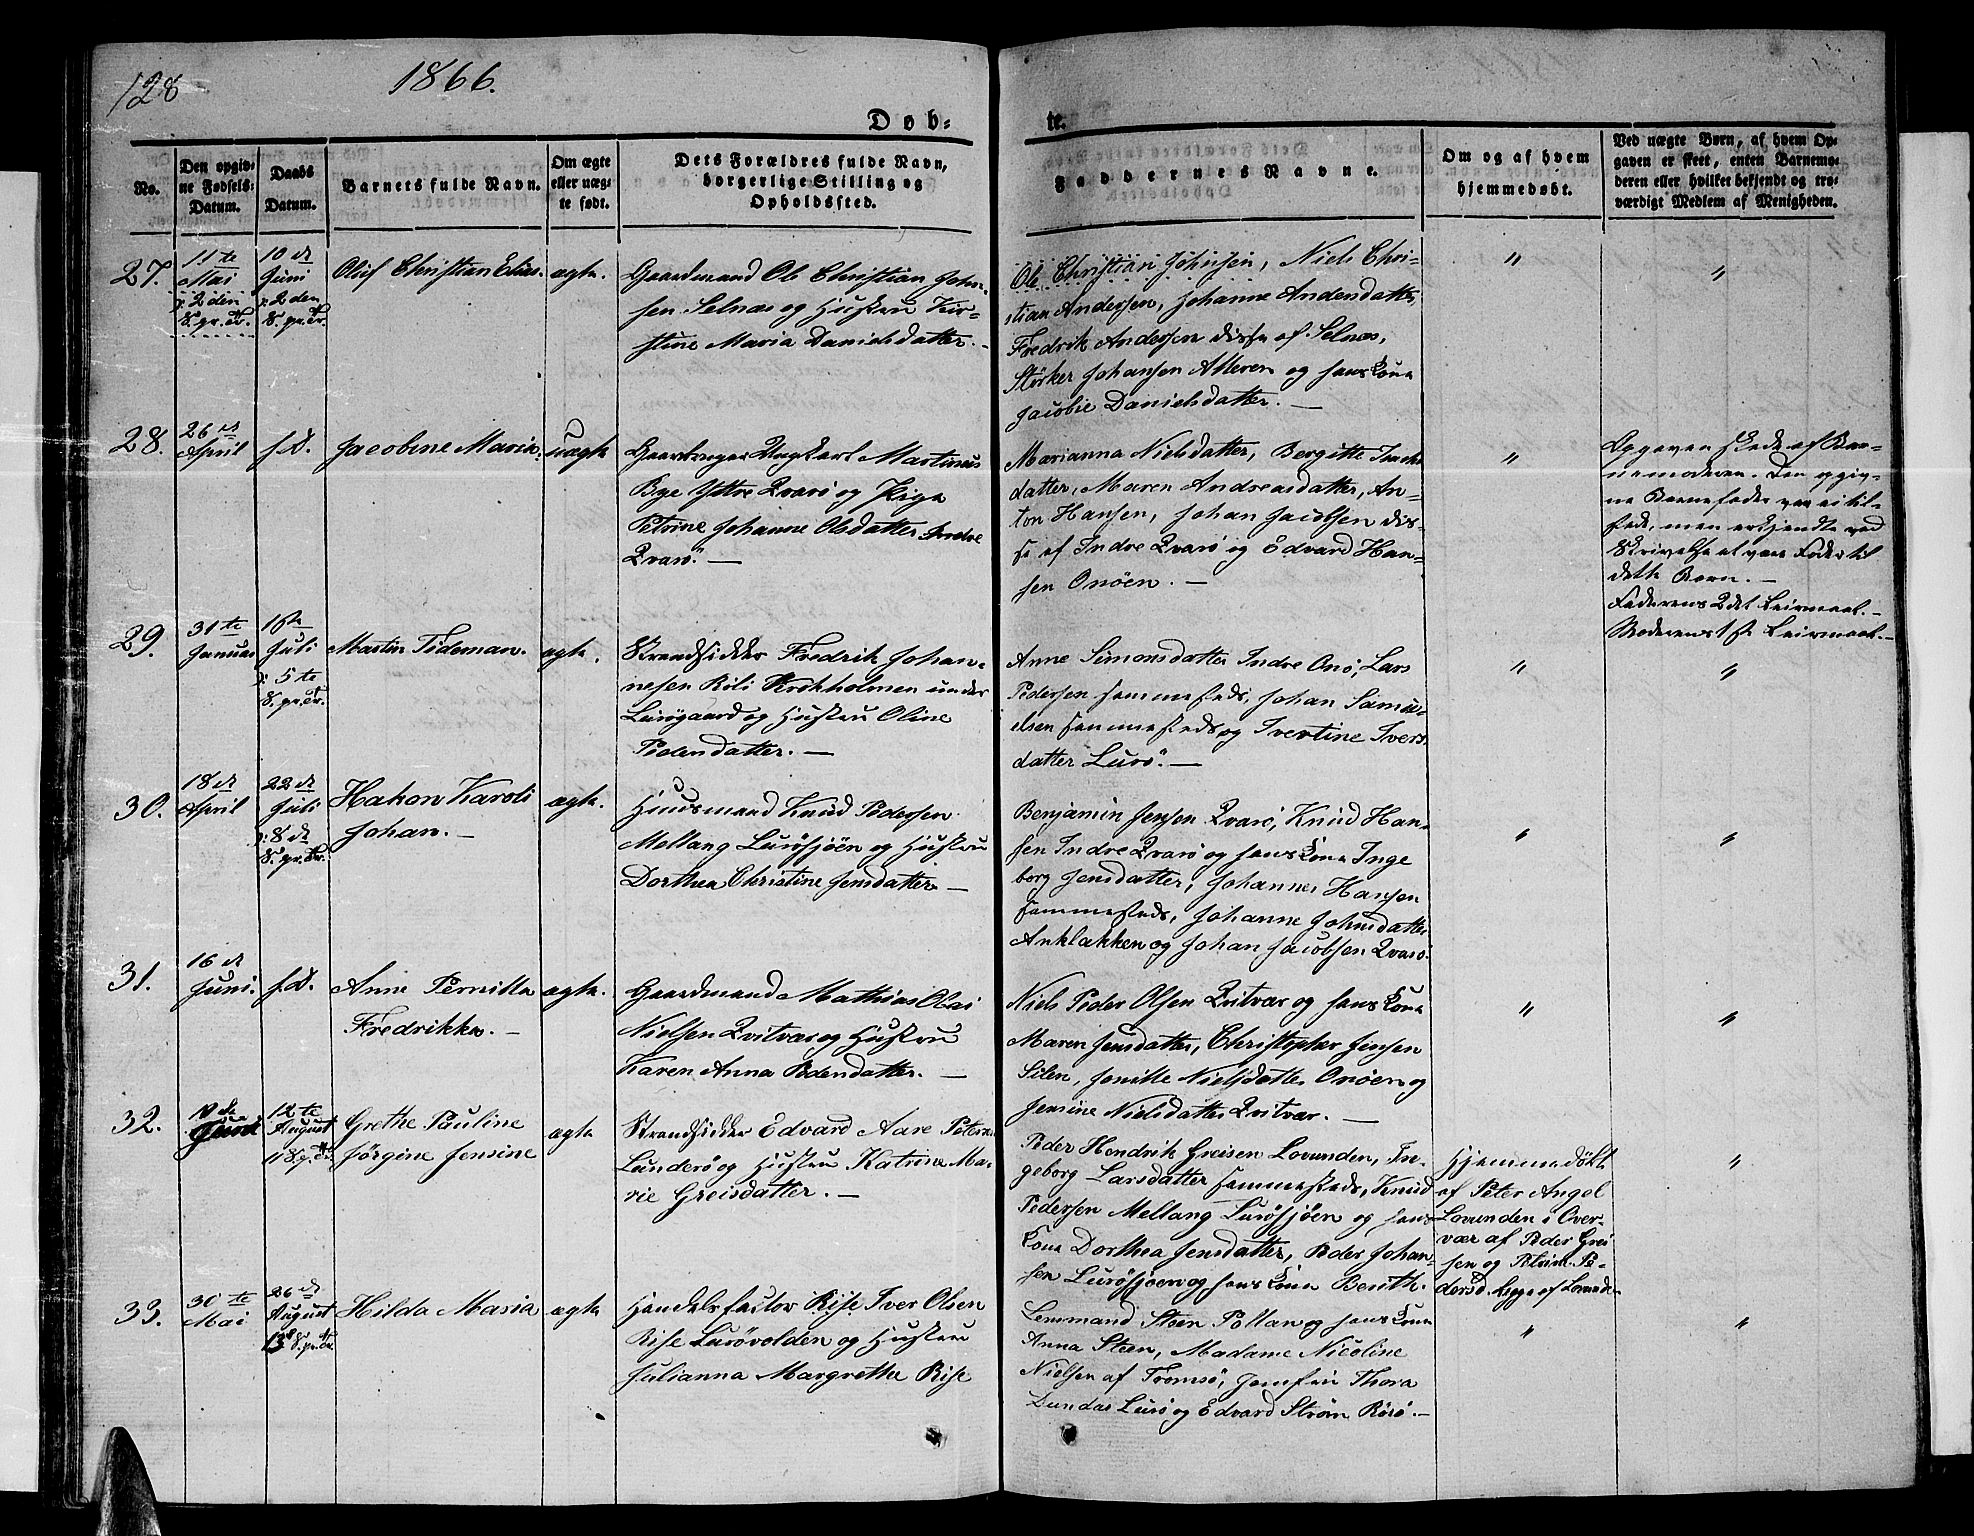 128
1866.
Døb-
te.
No.
Den opgiv-
ne Fødsels-
Datum.
Daabs
Datum.
Barnets fulde Navn.
Om ægte
eller uæg-
te født.
Dets Forældres fulde Navn,
borgerlige Stilling og
Opholdssted.
Faddernes Navne.
Om og af hvem
hjemmedøbt.
Ved uægte Børn, af hvem Op-
gaven er skeet, enten Barnemo-
deren eller hvilket bekjendt og tro-
værdigt Medlem af Menigheden.
27.
11te
Mai
10de
Juni
2 den
S. p. Tr.
Oluf Christian Elias.
ægte
Gaardmand Ole Christian John-
sen Selnæs og Hustru Kir-
stine Maria Danielsdatter. -
Ole Christian Johnsen, Niels Chri-
stian Andersen, Johanne Andersdatter,
Fredrik Andersen disse af Selnæs,
Størker Johansen Alteren og hans Kone
Jacobie Danielsdatter. -
"
"
28.
26de
April
s. D.
Jacobine Maria.
uægte
Gaardbruger Ungkarl Martinus
Bye Yttre Qvarø og Pige
Petrine Johanne Olsdatter Indre
Qvarø. -
Marianna Nielsdatter, Bergitte Isacks-
datter, Maren Andreasdatter, An-
ton Hansen, Johan Jacobsen dis-
se af Indre Qvarø og Edvard Han-
sen Onøen. -
"
Opgaven skede af Bar-
nemoderen. Den opgiv-
ne Barnefader var ei til-
stede, men erkjendte ved
Skrivelse at være Fader til
dette Barn. -
Faderens 2det Leiermaal. -
Moderens 1ste Leiermaal. -
29.
31te
Januar
1ste
Juli
5te
S. p. Tr.
Martin Tideman.
ægte.
Strandsidder Fredrik Johan-
nesen Kirkholmen under
Lurøgaard og Hustru Oline
Pedersdatter. -
Anne Simonsdatter Indre Onø, Lars
Pedersen sammesteds, Johan Samu-
elsen sammesteds og Ivertine Ivers-
datter Lurø. -
"
"
30.
18de
April
22de
Juli
8de
S. p. Tr.
Hakon Karoli
Johan. -
ægte.
Huusmand Knud Pedersen
Mellang Lurøsjøen og Hustru
Dorthea Christine Jensdatter -
Benjamin Jensen Qvarø, Knud Han-
sen Indre Qvarø og hans Kone Inge
borg Jensdatter, Johannes Hansen
sammesteds, Johanne Johnsdatter
Anklakken og Johan Jacobsen Qvarø.
"
"
31.
16de
Juni.
s. D.
Anne Pernilla
Fredrikke. -
ægte.
Gaardmand Mathias Olai
Nielsen Qvitvær og Hustru
Karen Anna Pedersdatter. -
Niels Peder Olsen Qvitvær og hans Kone
Maren Jensdatter, Christopher Jensen
Silen, Jenitte Nielsdatter Onøen og
Jensine Nielsdatter Qvitvær. -
"
"
32.
12te
August
11 S. p. Tr.
Grethe Pauline
Jørgine Jensine
ægte
Strandsidder Edvard Aare Peters.
Lunderø og Hustru Katrine Ma-
rie Greisdatter. -
Peder Hendrik Greisen Lovunden, In-
geborg Larsdatter sammesteds, Knud
Pedersen Mellang Lurøsjøen og hans
Kone Dorthea Jensdatter, Peder Johan-
sen Lurøsjøen og hans Kone Berith.
Hjemmedøbt
af Peter Angel
Lovunden i Over-
vær af Peder Grei
sen og Petrine Pe-
dersd. begge af Lovunde-
"
33.
30te
Mai
26de
August
13 S. p. Tr.
Hilda Maria
ægte
Handelsfactor Rise Iver Olsen
Rise Lurøvolden og Hustru
Julianna Margrethe Rise
Lensmand Steen Pollan og hans Kone
Anna Steen, Madame Nicoline
Nielsen af Tromsø, Jomfru Thora
Dundas Lurø og Edvard Strøm Rørø. -
"
"